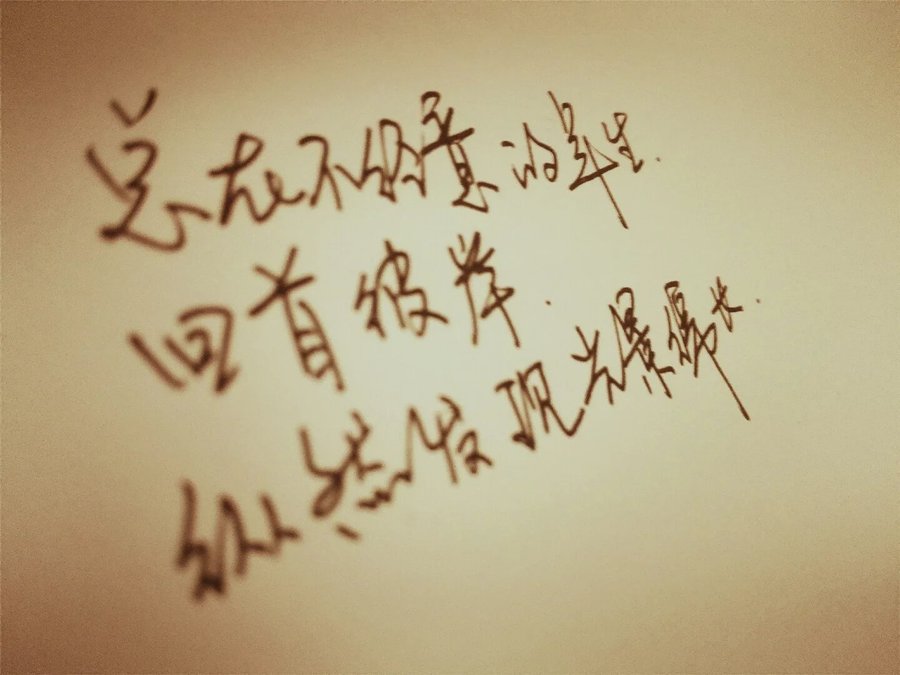 总在不经意的年生.
回首彼岸.
纵然发现光景绵长.